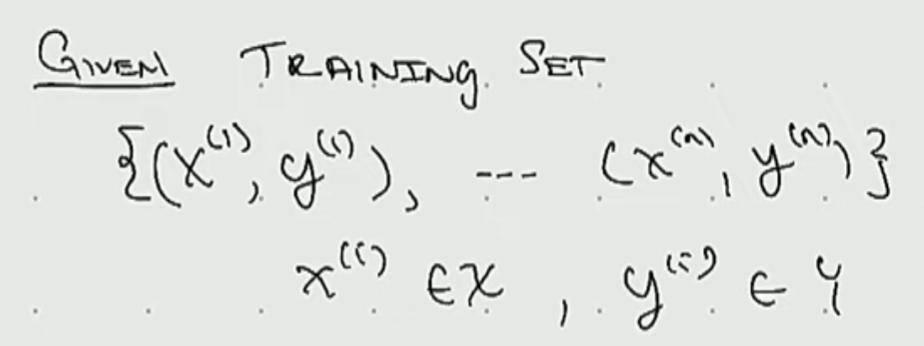 GIVEN TRAINING SET
{(x^(1), y^(1)), --- (x^(n), y^(n))}
x^(i) ∈ X, y^(i) ∈ Y